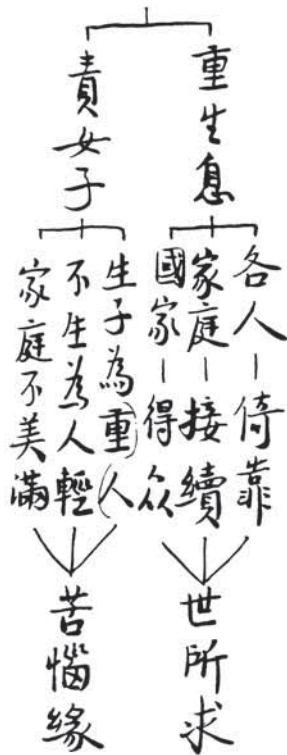 重生息
各人－倚靠
家庭－接續
國家－得众
世所求
責女子
生子為（重）人
不生為人輕
家庭不美滿
苦惱緣